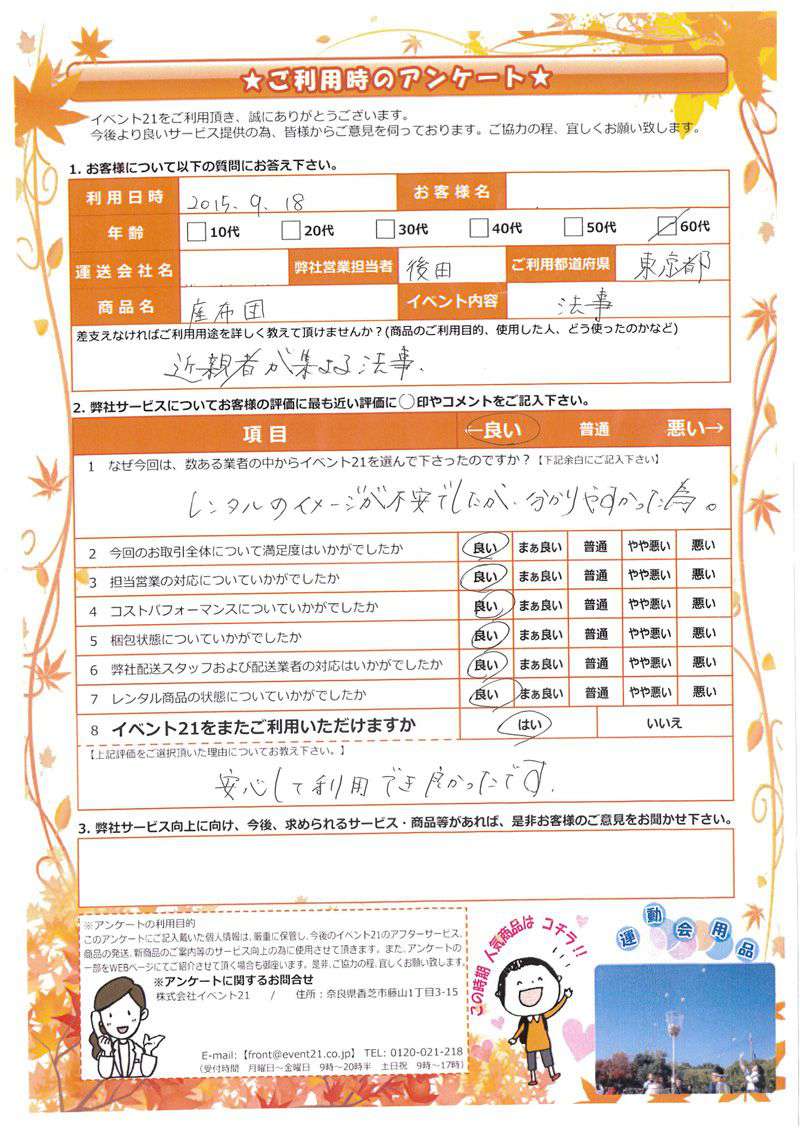 ★ご利用時のアンケート★
イベント21をご利用頂き、誠にありがとうございます。
今後より良いサービス提供の為、皆様からご意見を伺っております。ご協力の程、宜しくお願い致します。
1. お客様について以下の質問にお答え下さい。
利用日時 2015.9.18 お客様名
年齢 10代 20代 30代 40代 50代 60代
運送会社名 弊社営業担当者 後田 ご利用都道府県 東京都
商品名 座布団 イベント内容 法事
差支えなければご利用用途を詳しく教えて頂けませんか？(商品のご利用目的、使用した人、どう使ったのかなど)
近親者が集まる法事.
2. 弊社サービスについてお客様の評価に最も近い評価に○印やコメントをご記入下さい。
項目 ←良い 普通 悪い→
1 なぜ今回は、数ある業者の中からイベント21を選んで下さったのですか？【下記余白にご記入下さい】
レンタルのイメージが不安でしたが、分かりやすかった為。
2 今回のお取引全体について満足度はいかがでしたか 良い まぁ良い 普通 やや悪い 悪い
3 担当営業の対応についていかがでしたか 良い まぁ良い 普通 やや悪い 悪い
4 コストパフォーマンスについていかがでしたか 良い まぁ良い 普通 やや悪い 悪い
5 梱包状態についていかがでしたか 良い まぁ良い 普通 やや悪い 悪い
6 弊社配送スタッフおよび配送業者の対応はいかがでしたか 良い まぁ良い 普通 やや悪い 悪い
7 レンタル商品の状態についていかがでしたか 良い まぁ良い 普通 やや悪い 悪い
8 イベント21をまたご利用いただけますか はい いいえ
【上記評価をご選択頂いた理由についてお教え下さい。】
安心して利用でき良かったです.
3. 弊社サービス向上に向け、今後、求められるサービス・商品等があれば、是非お客様のご意見をお聞かせ下さい。
※アンケートの利用目的
このアンケートにご記入戴いた個人情報は、厳重に保管し、今後のイベント21のアフターサービス、
商品の発送、新商品のご案内等のサービス向上の為に使用させて頂きます。また、アンケートの
一部をWEBページにてご紹介させて頂く場合も御座います。是非、ご協力の程、宜しくお願い致します。
※アンケートに関するお問合せ
株式会社イベント21 / 住所：奈良県香芝市藤山1丁目3-15
E-mail:【front@event21.co.jp】 TEL: 0120-021-218
(受付時間 月曜日〜金曜日 9時〜20時半 土日祝 9時〜17時)
この時期 人気商品は コチラ!!
運動会用品